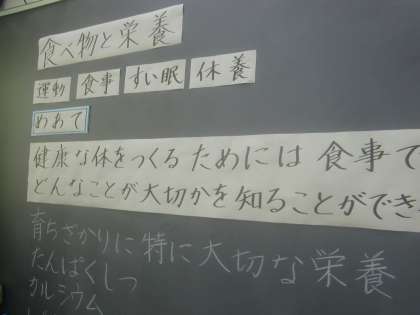 食べ物と栄養
運動 食事 すい眠 休養
めあて
健康な体をつくるためには食事で
どんなことが大切かを知ることができ
育ちざかりに特に大切な栄養
たんぱくしつ
カルシウム